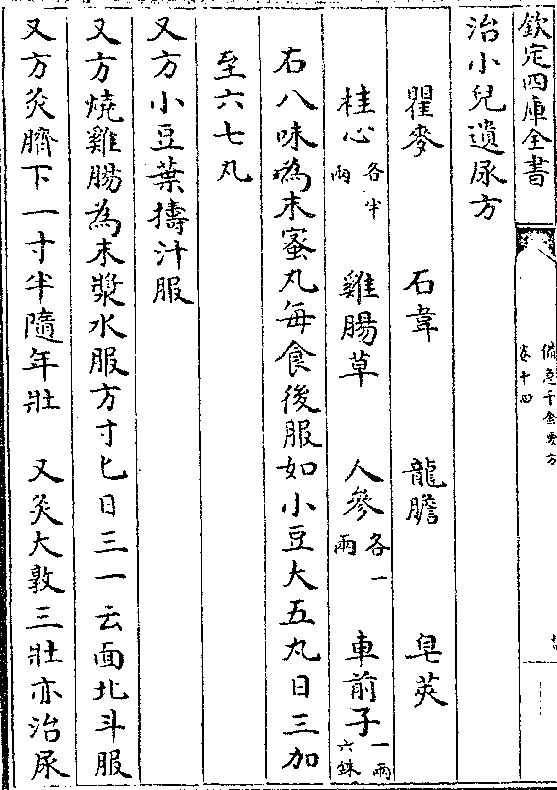 欽定四庫全書
備急千金要方
卷十四
治小兒遺尿方
瞿麥 石韋 龍膽 皂莢
桂心各半兩 雞腸草 人參各一兩 車前子一兩六銖
右八味為末蜜丸每食後服如小豆大五丸日三加
至六七丸
又方小豆葉擣汁服
又方燒雞腸為末漿水服方寸匕日三一云面北斗服
又方灸臍下一寸半隨年壯 又灸大敦三壯亦治尿